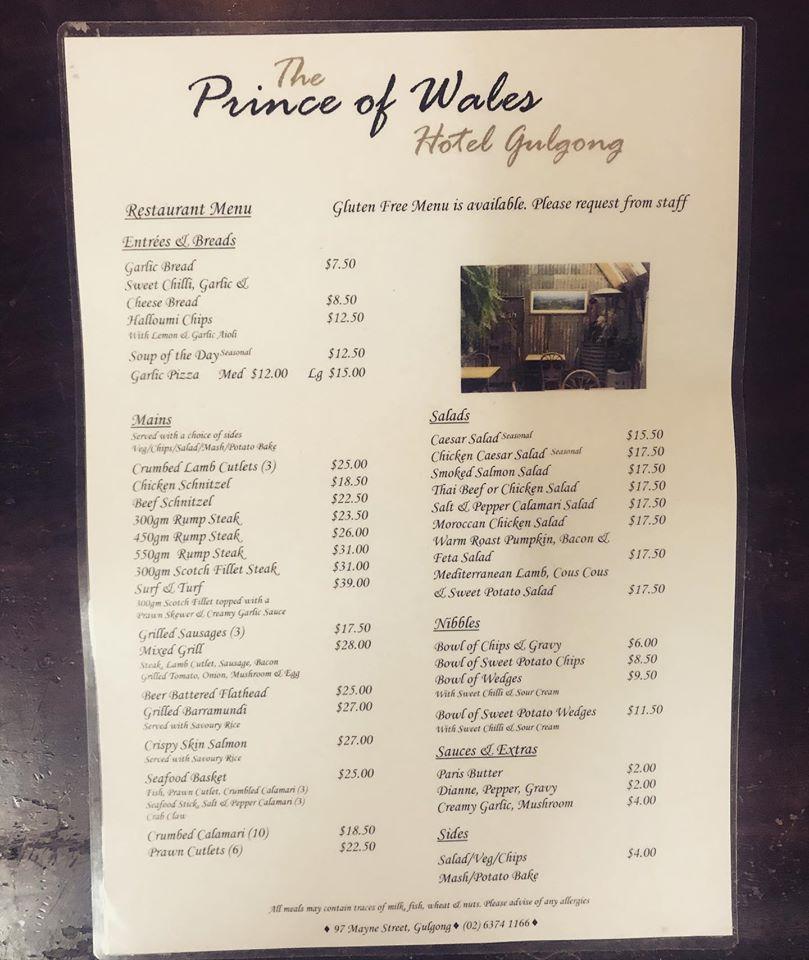 The
Prince of Wales
Hotel Gulgong
Restaurant Menu
Gluten Free Menu is available. Please request from staff
Entrées & Breads
Garlic Bread $7.50
Sweet Chilli, Garlic &
Cheese Bread $8.50
Halloumi Chips $12.50
With Lemon & Garlic Aioli
Soup of the Day Seasonal $12.50
Garlic Pizza Med $12.00 Lg $15.00
Mains
Served with a choice of sides
Veg/Chips/Salad/Mash/Potato Bake
Crumbed Lamb Cutlets (3) $25.00
Chicken Schnitzel $18.50
Beef Schnitzel $22.50
300gm Rump Steak $23.50
450gm Rump Steak $26.00
550gm Rump Steak $31.00
300gm Scotch Fillet Steak $31.00
Surf & Turf $39.00
300gm Scotch Fillet topped with a
Prawn Skewer & Creamy Garlic Sauce
Grilled Sausages (3) $17.50
Mixed Grill $28.00
Steak, Lamb Cutlet, Sausage, Bacon
Grilled Tomato, Onion, Mushroom & Egg
Beer Battered Flathead $25.00
Grilled Barramundi $27.00
Served with Savoury Rice
Crispy Skin Salmon $27.00
Served with Savoury Rice
Seafood Basket $25.00
Fish, Prawn Cutlet, Crumbled Calamari (3)
Seafood Stick, Salt & Pepper Calamari (3)
Crab Claw
Crumbed Calamari (10) $18.50
Prawn Cutlets (6) $22.50
Salads
Caesar Salad Seasonal $15.50
Chicken Caesar Salad Seasonal $17.50
Smoked Salmon Salad $17.50
Thai Beef or Chicken Salad $17.50
Salt & Pepper Calamari Salad $17.50
Moroccan Chicken Salad $17.50
Warm Roast Pumpkin, Bacon &
Feta Salad $17.50
Mediterranean Lamb, Cous Cous
& Sweet Potato Salad $17.50
Nibbles
Bowl of Chips & Gravy $6.00
Bowl of Sweet Potato Chips $8.50
Bowl of Wedges $9.50
With Sweet Chilli & Sour Cream
Bowl of Sweet Potato Wedges $11.50
With Sweet Chilli & Sour Cream
Sauces & Extras
Paris Butter $2.00
Dianne, Pepper, Gravy $2.00
Creamy Garlic, Mushroom $4.00
Sides
Salad/Veg/Chips $4.00
Mash/Potato Bake
All meals may contain traces of milk, fish, wheat & nuts. Please advise of any allergies
♦ 97 Mayne Street, Gulgong ♦ (02) 6374 1166 ♦